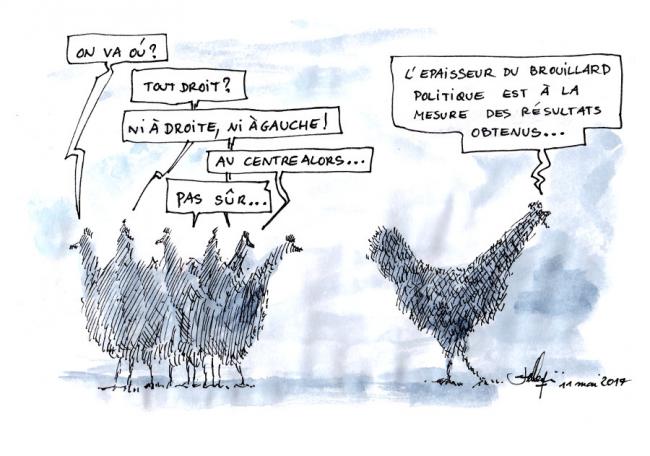 ON VA OÙ?
TOUT DROIT?
NI À DROITE, NI À GAUCHE!
AU CENTRE ALORS...
PAS SÛR...
L'EPAISSEUR DU BROUILLARD
POLITIQUE EST À LA
MESURE DES RÉSULTATS
OBTENUS...
11 mai 2017